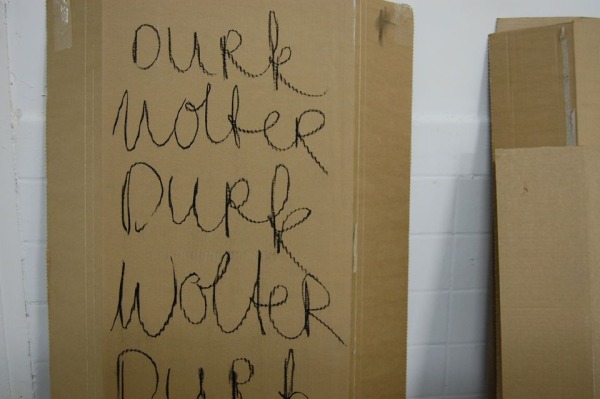 DURk
WolteR
DURk
WolteR
DURk